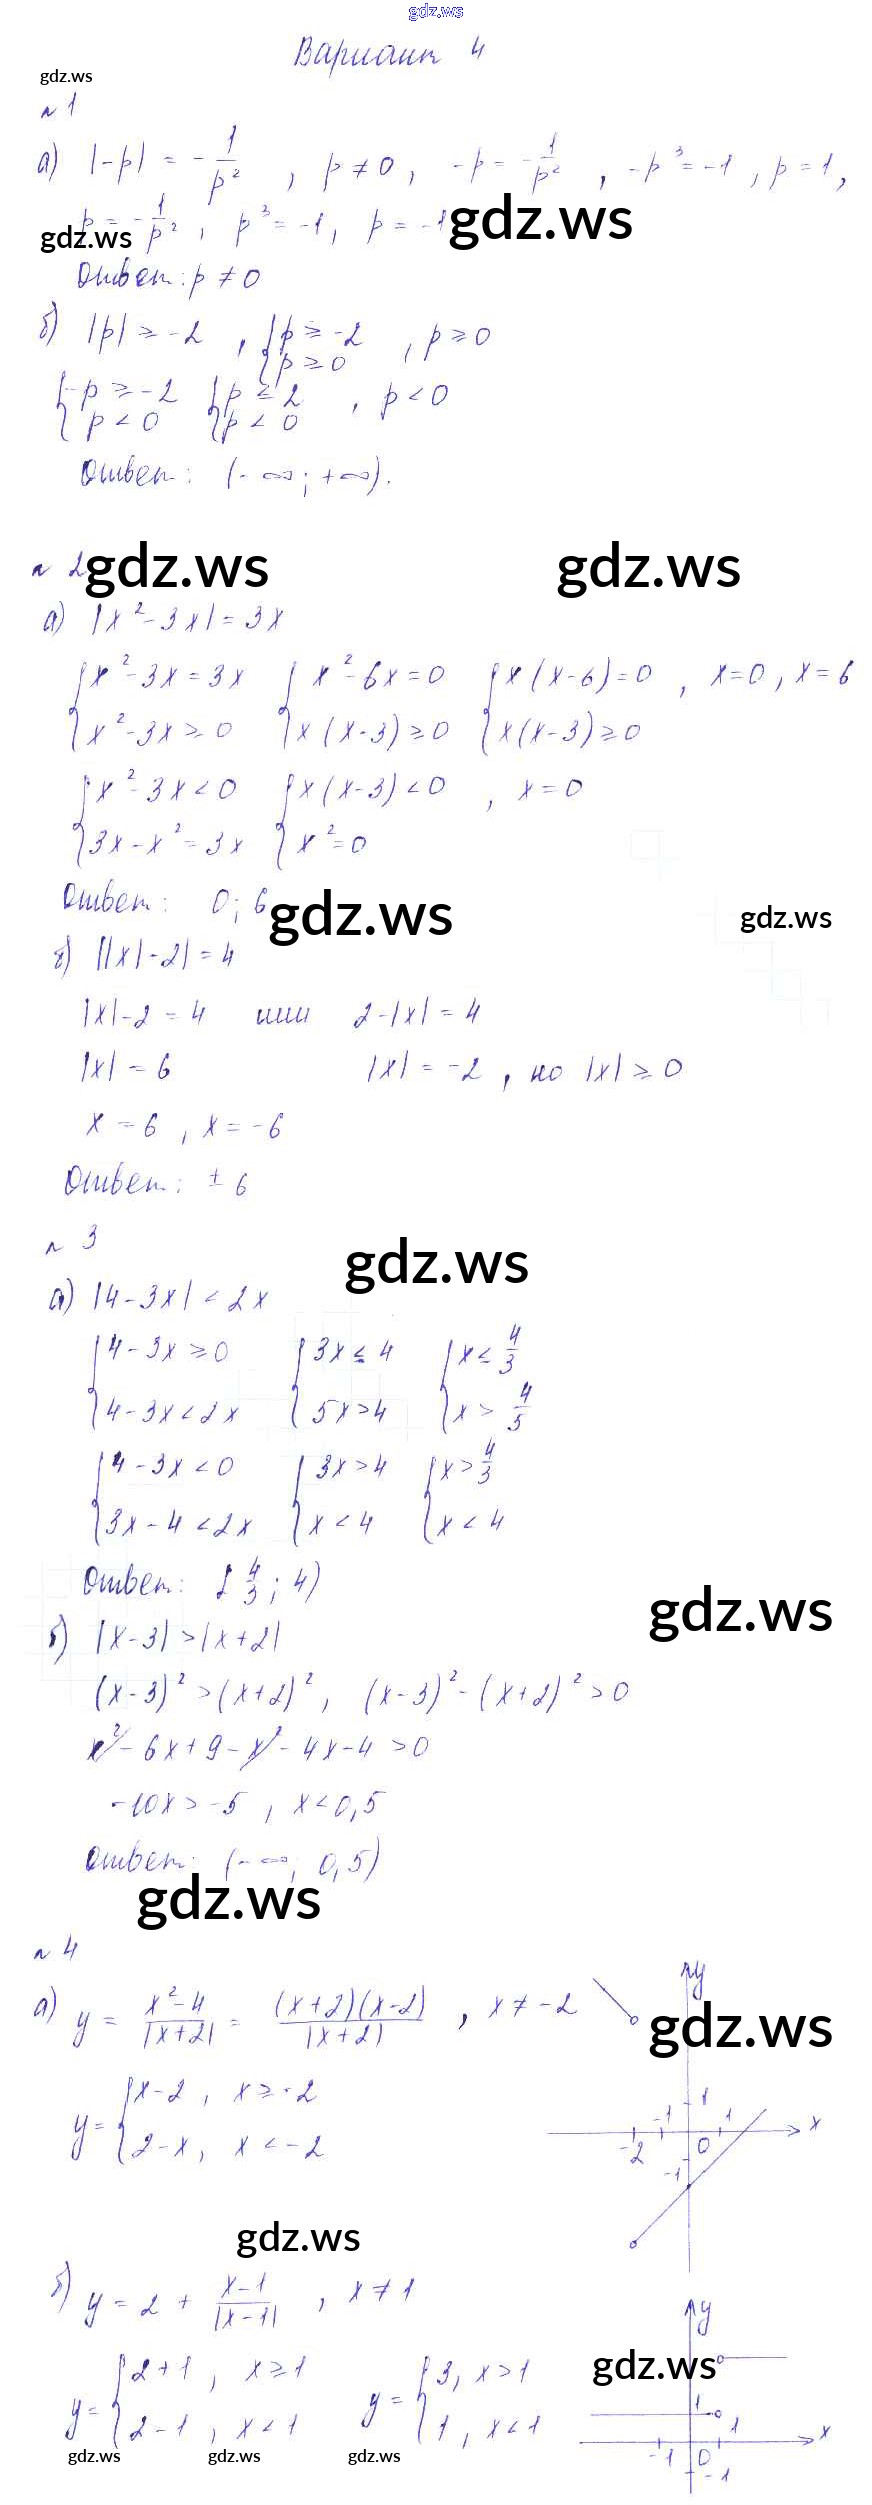 gdz.ws
Вариант 4
gdz.ws
n 1
а) |-p| = - 1/p², p ≠ 0, -p = - 1/p², -p³ = -1, p = 1,
p = - 1/p², p³ = -1, p = -1
gdz.ws gdz.ws
Ответ: p ≠ 0
б) |p| ≥ -2, { p ≥ -2 ; p ≥ 0, p ≥ 0
{ -p ≥ -2 ; p < 0 { p ≤ 2 ; p < 0, p < 0
Ответ: (-∞; +∞).
n 2
gdz.ws gdz.ws
а) |x² - 3x| = 3x
{ x² - 3x = 3x { x² - 6x = 0 { x(x-6) = 0, x = 0, x = 6
x² - 3x ≥ 0 x(x-3) ≥ 0 x(x-3) ≥ 0
{ x² - 3x < 0 { x(x-3) < 0, x = 0
3x - x² = 3x x² = 0
Ответ: 0; 6
gdz.ws gdz.ws
б) ||x| - 2| = 4
|x| - 2 = 4 или 2 - |x| = 4
|x| = 6 |x| = -2, но |x| ≥ 0
x = 6, x = -6
Ответ: ± 6
n 3
gdz.ws
а) |4 - 3x| < 2x
{ 4 - 3x ≥ 0 { 3x ≤ 4 { x ≤ 4/3
4 - 3x < 2x 5x > 4 x > 4/5
{ 4 - 3x < 0 { 3x > 4 { x > 4/3
3x - 4 < 2x x < 4 x < 4
Ответ: [4/3; 4)
gdz.ws
б) |x - 3| > |x + 2|
(x-3)² > (x+2)², (x-3)² - (x+2)² > 0
x² - 6x + 9 - x² - 4x - 4 > 0
-10x > -5, x < 0,5
Ответ: (-∞; 0,5)
gdz.ws
n 4
а) y = x²-4/|x+2| = (x+2)(x-2)/|x+2|, x ≠ -2
gdz.ws
y = { x-2, x ≥ -2
2-x, x < -2
y
1
-1 1 x
-2 0
-1
gdz.ws
б) y = 2 + x-1/|x-1|, x ≠ 1
y = { 2+1, x ≥ 1 y = { 3, x > 1
2-1, x < 1 1, x < 1
y
gdz.ws
1
1 x
-1 0
-1
gdz.ws gdz.ws gdz.ws